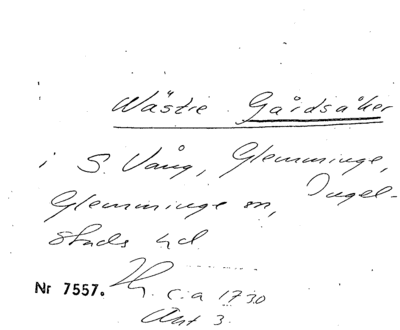 Wästre Gårdsåker
i S. Vång, Glemminge,
Glemminge sn, Ingel-
stads hd.
Nr 7557. c.a 1730
Akt 3.